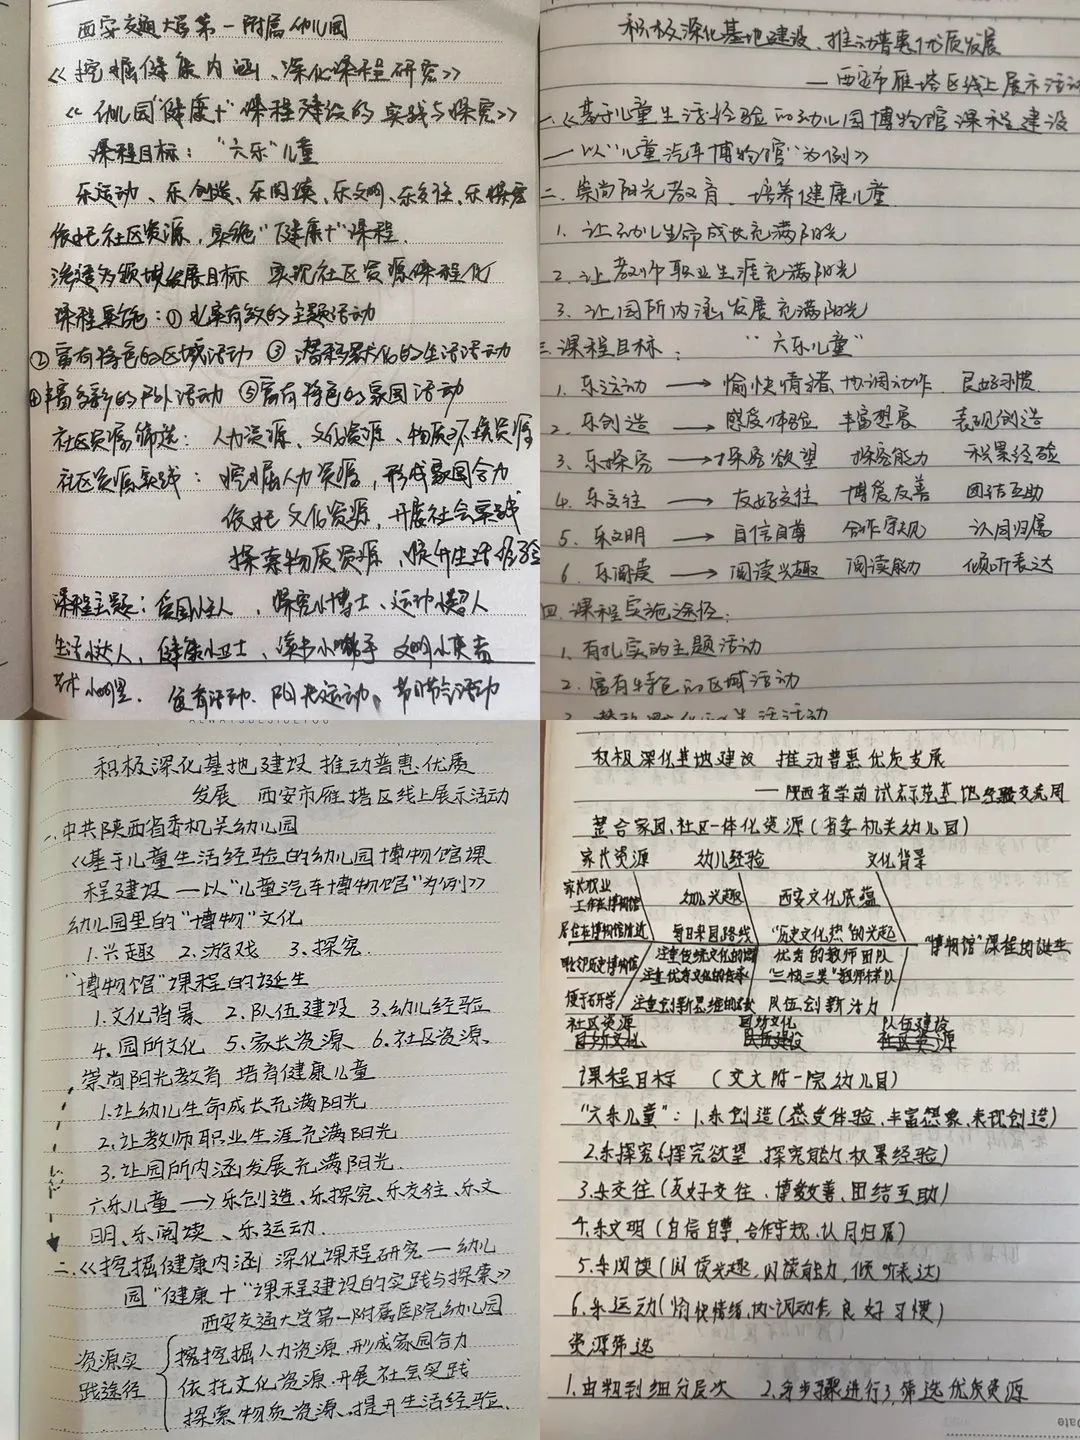 西安交通大学第一附属幼儿园
《挖掘健康内涵、深化课程研究》
《幼儿园"健康+"课程建设的实践与探究》
课程目标："六乐"儿童
乐运动、乐创造、乐阅读、乐文明、乐交往、乐探究
依托社区资源,实施"健康+"课程.
渗透多领域发展目标 实现社区资源课程化
课程实施:①扎实有效的主题活动
②富有特色的区域活动 ③潜移默化的生活活动
④丰富多彩的户外活动 ⑤富有特色的家园活动
社区资源筛选: 人力资源、文化资源、物质环境资源
社区资源实践: 挖掘人力资源,形成家园合力
依托文化资源,开展社会实践
探索物质资源,提升生活经验
课程主题:爱国小主人、探究小博士、运动小超人
生活小达人、健康小卫士、读书小能手 文明小使者
艺术小明星. 体育活动. 阳光运动、节日节气活动
ALWAYSBESIDEYOU
积极深化基地建设、推动普惠优质发展
——西安市雁塔区线上展示活动
一.《基于儿童生活经验的幼儿园博物馆课程建设
—以"儿童汽车博物馆"为例》
二.崇尚阳光教育、培养健康儿童
1.让幼儿生命成长充满阳光
2.让教师职业生涯充满阳光
3.让园所内涵发展充满阳光
三.课程目标: "六乐儿童"
1.乐运动 → 愉快情绪 协调动作 良好习惯
2.乐创造 → 感受体验 丰富想象 表现创造
3.乐探究 → 探究欲望 探究能力 积累经验
4.乐交往 → 友好交往 博爱友善 团结互助
5.乐文明 → 自信自尊 合作守规 认同归属
6.乐阅读 → 阅读兴趣 阅读能力 倾听表达
四.课程实施途径:
1.有扎实的主题活动
2.富有特色的区域活动
积极深化基地建设 推动普惠优质
发展 西安市雁塔区线上展示活动
一、中共陕西省委机关幼儿园
《基于儿童生活经验的幼儿园博物馆课
程建设—以"儿童汽车博物馆"为例》
幼儿园里的"博物"文化
1.兴趣 2.游戏 3.探究.
"博物馆"课程的诞生
1.文化背景 2.队伍建设 3.幼儿经验
4.园所文化 5.家长资源 6.社区资源、
崇尚阳光教育 培育健康儿童
1.让幼儿生命成长充满阳光
2.让教师职业生涯充满阳光
3.让园所内涵发展充满阳光.
六乐儿童→乐创造、乐探究、乐交往、乐文
明、乐阅读、乐运动.
二.《挖掘健康内涵 深化课程研究—幼儿
园"健康+"课程建设的实践与探索》
西安交通大学第一附属医院幼儿园
资源实践途径
挖掘人力资源、形成家园合力
依托文化资源、开展社会实践
探索物质资源、提升生活经验.
积极深化基地建设 推动普惠优质发展
——陕西省学前试点示范基地经验交流周
整合家园、社区一体化资源(省委机关幼儿园)
家长资源 幼儿经验 文化背景
家长职业
工作在博物馆 幼儿兴趣 西安文化底蕴
居住在博物馆附近 每日来园路线 "历史文化热"的兴起 "博物馆"课程的诞生
毗邻历史博物馆 优秀的教师团队
便于研学 队伍创新活力
社区资源 园所文化 队伍建设
课程目标 (交大附一院幼儿园)
"六乐儿童":1.乐创造(感受体验、丰富想象、表现创造)
2.乐探究(探究欲望 探究能力 积累经验)
3.乐交往(友好交往、博爱友善、团结互助)
4.乐文明(自信自尊、合作守规、认同归属)
5.乐阅读(阅读兴趣、阅读能力、倾听表达)
6.乐运动(愉快情绪、协调动作 良好习惯)
资源筛选
1.由粗到细分层次 2.分步骤进行,筛选优质资源